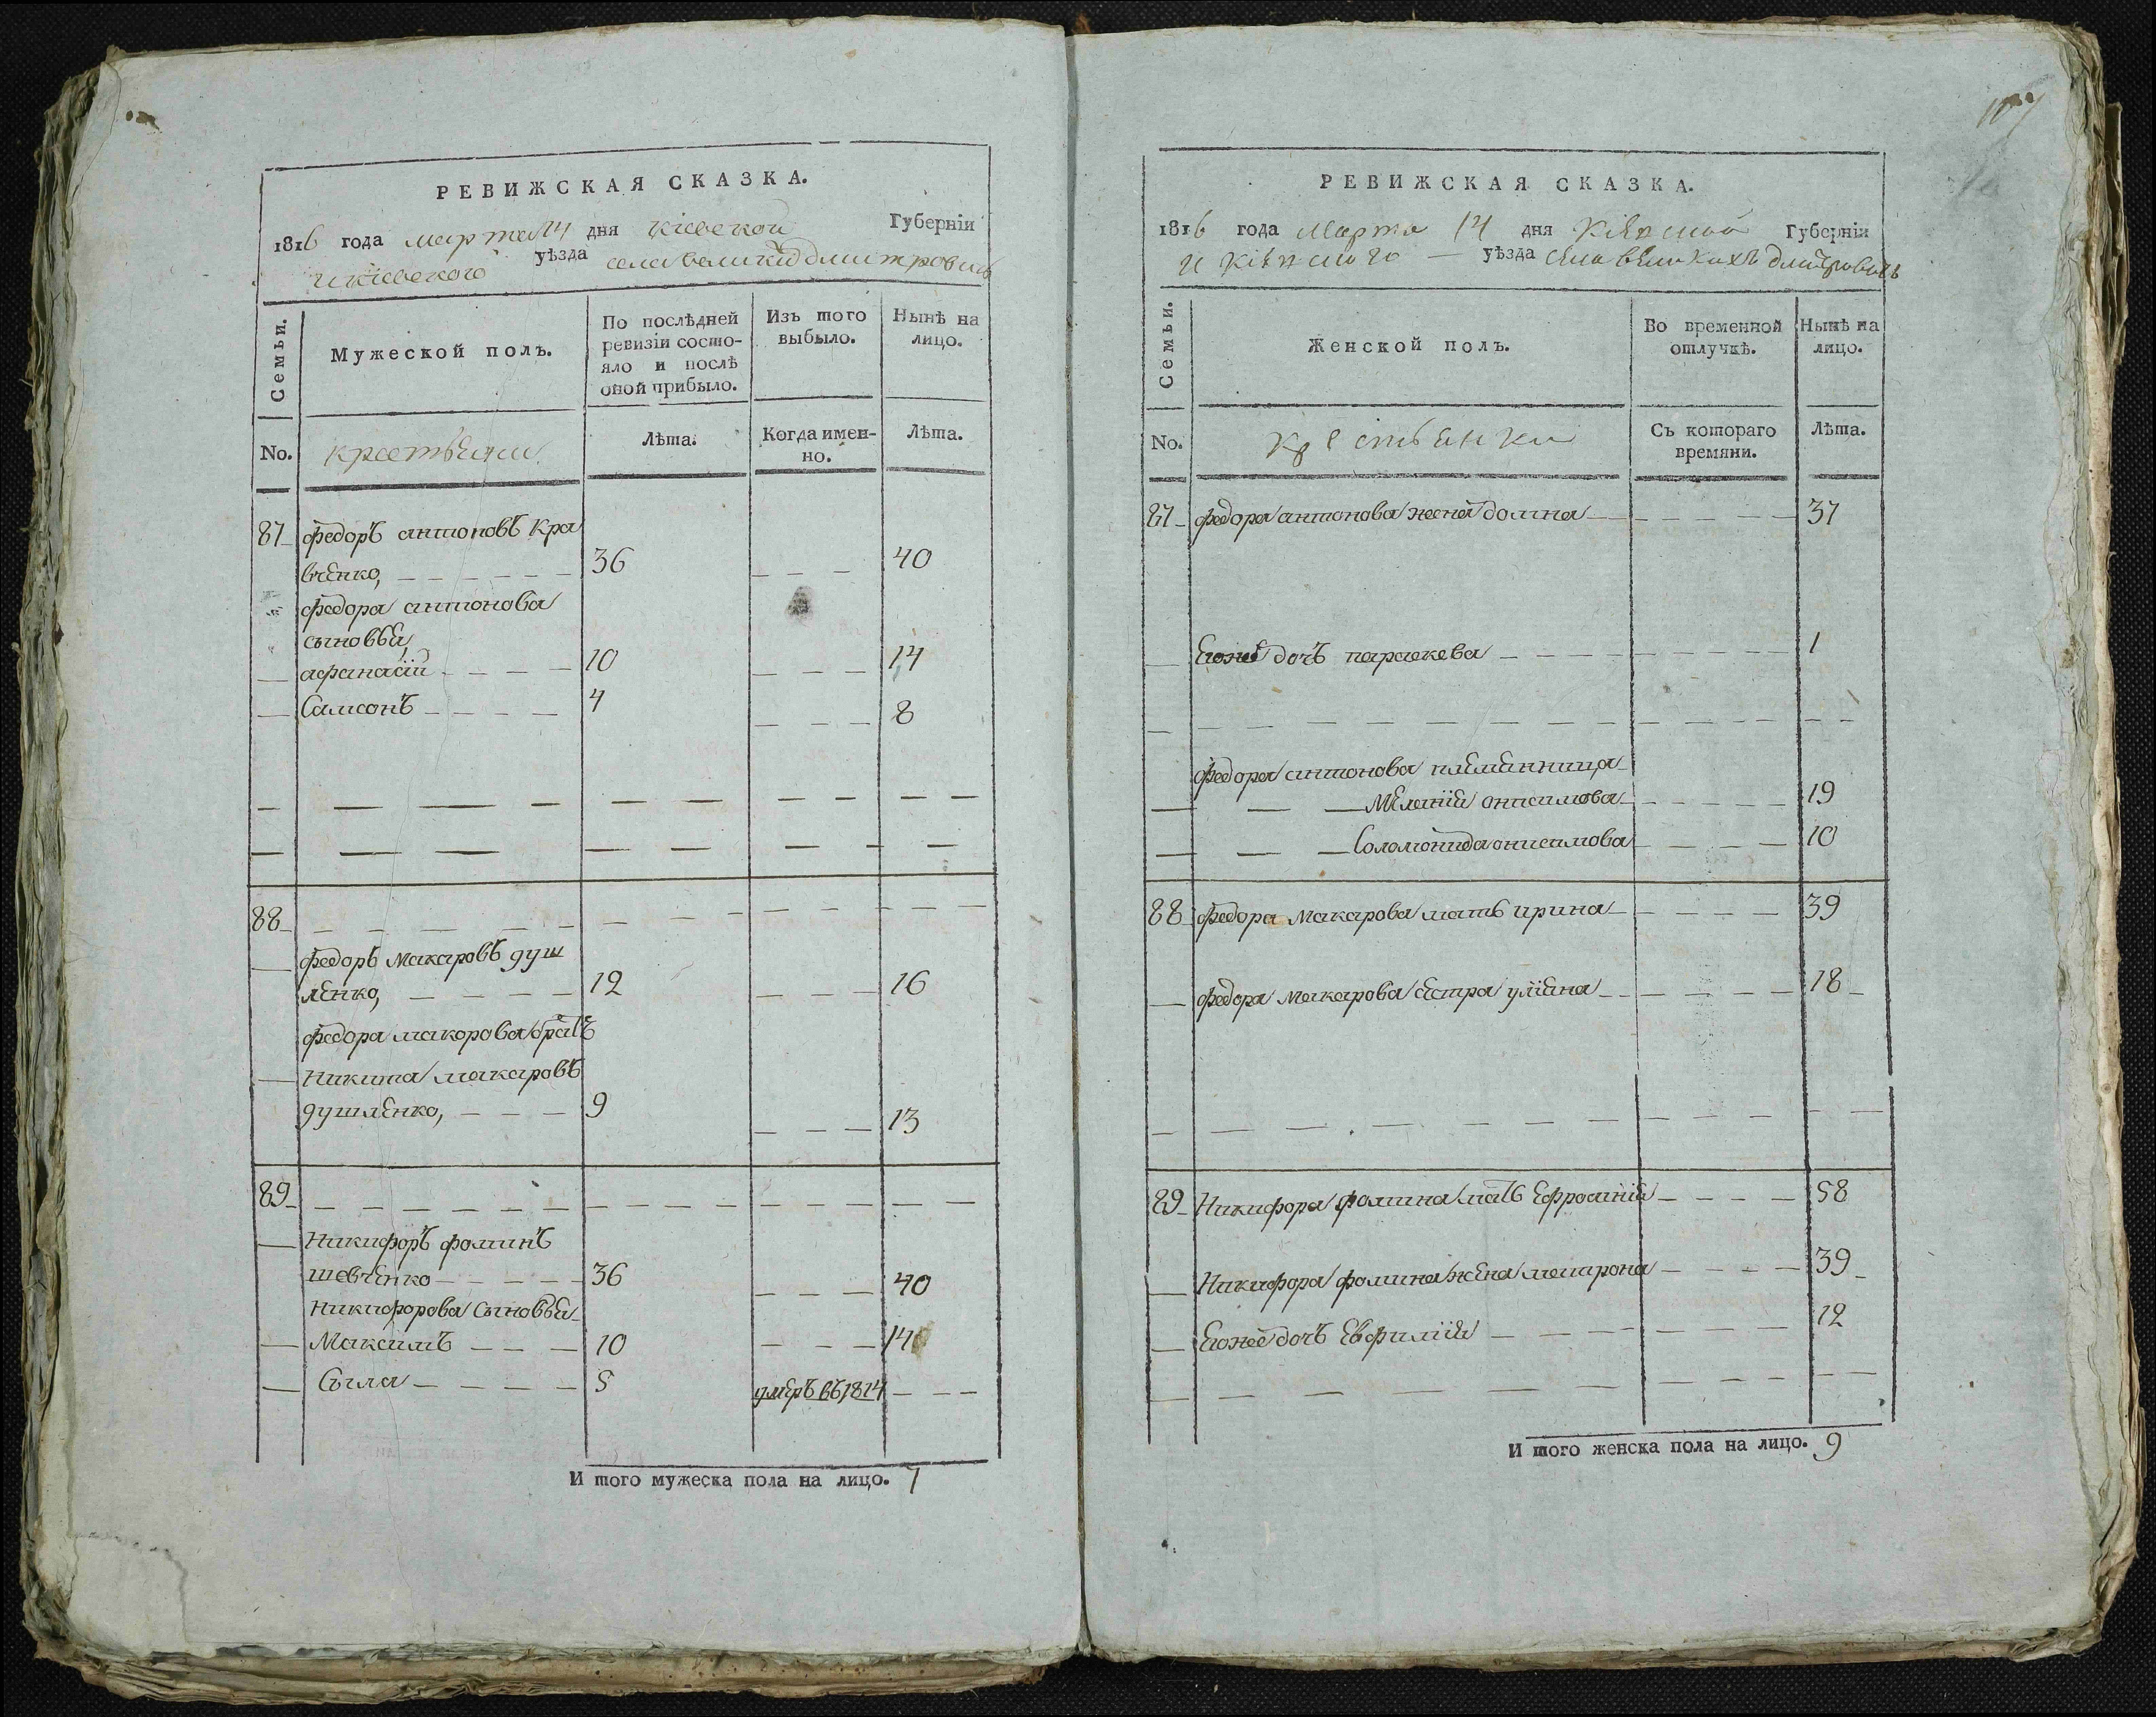 РЕВИЖСКАЯ СКАЗКА.
1816 года марта 14 дня Кіевской Губерніи
и кіевского уѣзда села великихъ дмитровичъ
Семьи.
Мужеской полъ.
По послѣдней
ревизіи состо-
яло и послѣ
оной прибыло.
Изъ того
выбыло.
Нынѣ на
лицо.
No.
крестьяни
Лѣта.
Когда имен-
но.
Лѣта.
87 федоръ антоновъ Кра
вченко, 36 40
федора антонова
сыновья,
афанасій 10 14
Самсонъ 4 8
88
федоръ Макаровъ душ
ленко, 12 16
федора макарова братъ
Никита макаровъ
душленко, 9 13
89
Никифоръ фоминъ
шевченко 36 40
Никифорова сыновья
Максимъ 10 14
Сыла 5 умеръ въ 1814
И того мужеска пола на лицо. 7
107
РЕВИЖСКАЯ СКАЗКА.
1816 года Марта 14 дня Кіевской Губерніи
и Кіевского уѣзда села великихъ дмитровичъ
Семьи.
Женской полъ.
Во временной
отлучкѣ.
Нынѣ на
лицо.
No.
Крестьянки
Съ котораго
времяни.
Лѣта.
87 федора антонова жена домна 37
Еюже дочъ параскева 1
федора антонова племянница
Меланія онисимова 19
Соломонида онисимова 10
88 федора Макарова мать ирина 39
федора макарова сестра уліяна 18
89 Никифора фомина мать Ефросинія 58
Никифора фомина жена матрона 39
Еюже дочъ Евфимія 12
И того женска пола на лицо. 9